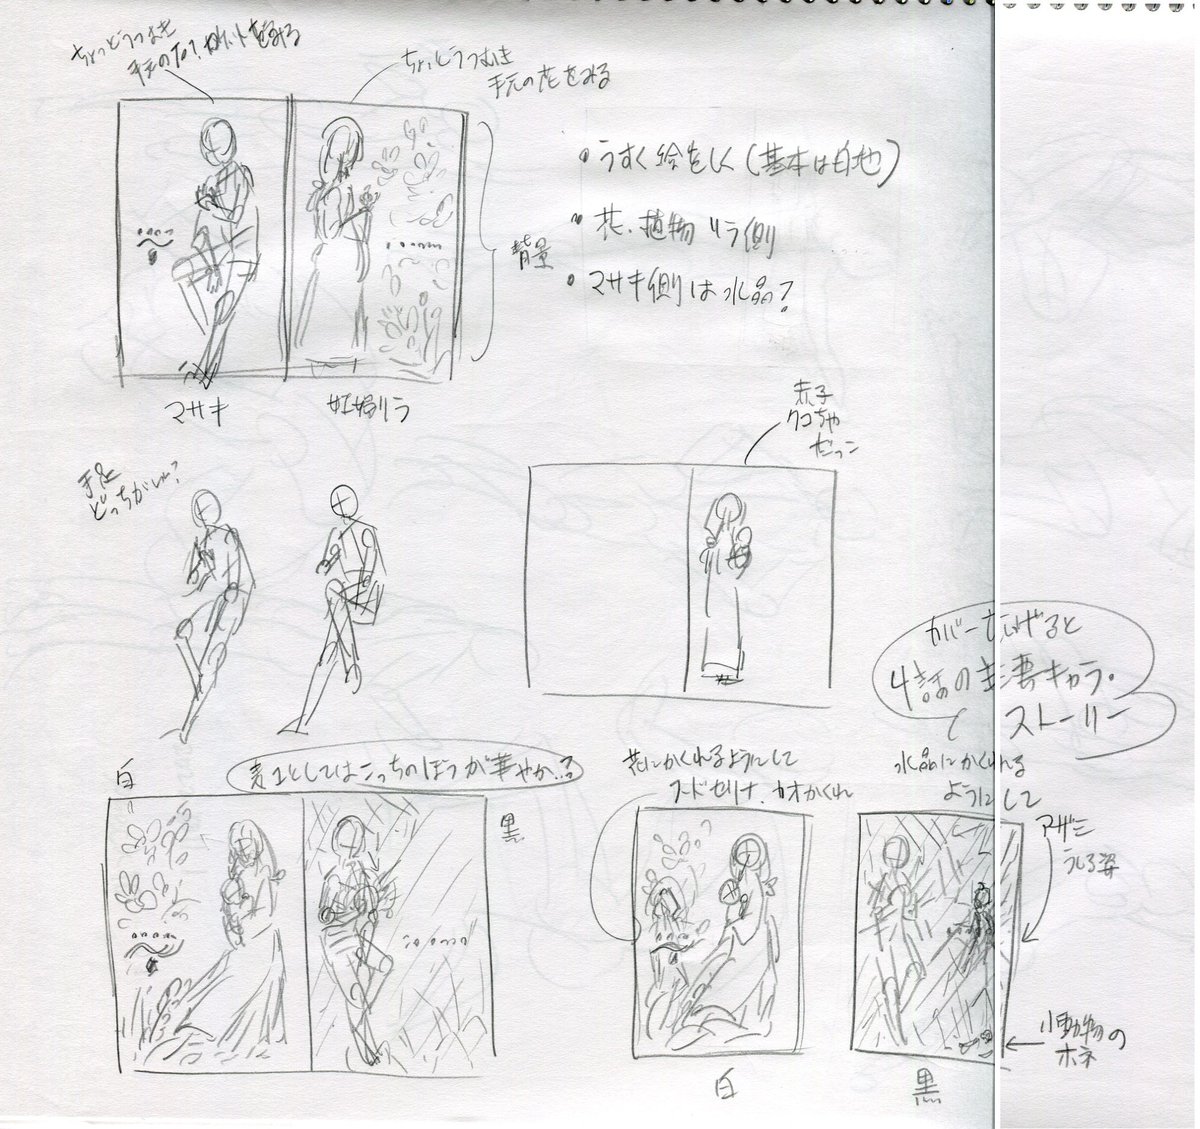 ちょっとうつむき
手元の ロケットをみる
ちょっとうつむき
手元の花をみる
・うすく絵をしく(基本は白地)
・花、植物 リラ側
・マサキ側は水晶?
背景
マサキ
妊婦リラ
手足
どっちがいい?
赤子
タコちゃ
だっこ
カバー広げると
4話の主要キャラ・
ストーリー
白
表1としてはこっちのほうが華やか..?
黒
花にかくれるようにして
フードセリナ、カオかくれ
水晶にかくれる
ようにして
アザミ
うしろ姿
小動物の
ホネ
白
黒